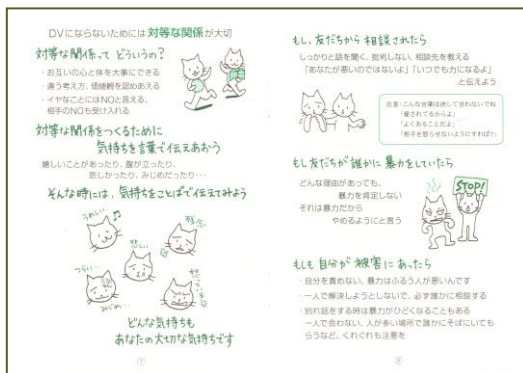 DVにならないためには 対等な関係が大切
対等な関係って どういうの?
・お互いの心と体を大事にできる
・違う考え方、価値観を認めあえる
・イヤなことにはNOと言える、
相手のNOも受け入れる
対等な関係をつくるために
気持ちを言葉で伝えあおう
嬉しいことがあったり、腹が立ったり、
悲しかったり、みじめだったり…
そんな時には、気持ちをことばで伝えてみよう
うれしい
残念
悲しい
つらい…
みじめ…
怒っている
どんな気持ちも
あなたの大切な気持ちです
⑦
もし、友だちから 相談されたら
しっかりと話を聞く、批判しない、相談先を教える
「あなたが悪いのではないよ」「いつでも力になるよ」
と伝えよう
注意:こんな言葉は決して言わないでね
「愛されてるからよ」
「よくあることだよ」
「相手を怒らせないようにすれば?」
もし友だちが誰かに暴力をしていたら
どんな理由があっても、
暴力を肯定しない
それは暴力だから
やめるようにと言う
STOP!
もしも自分が被害にあったら
・自分を責めない、暴力はふるう人が悪いんです
・一人で解決しようとしないで、必ず誰かに相談する
・別れ話をする時は暴力がひどくなることもある
一人で会わない、人が多い場所で誰かにそばにいても
らうなど、くれぐれも注意を
⑧